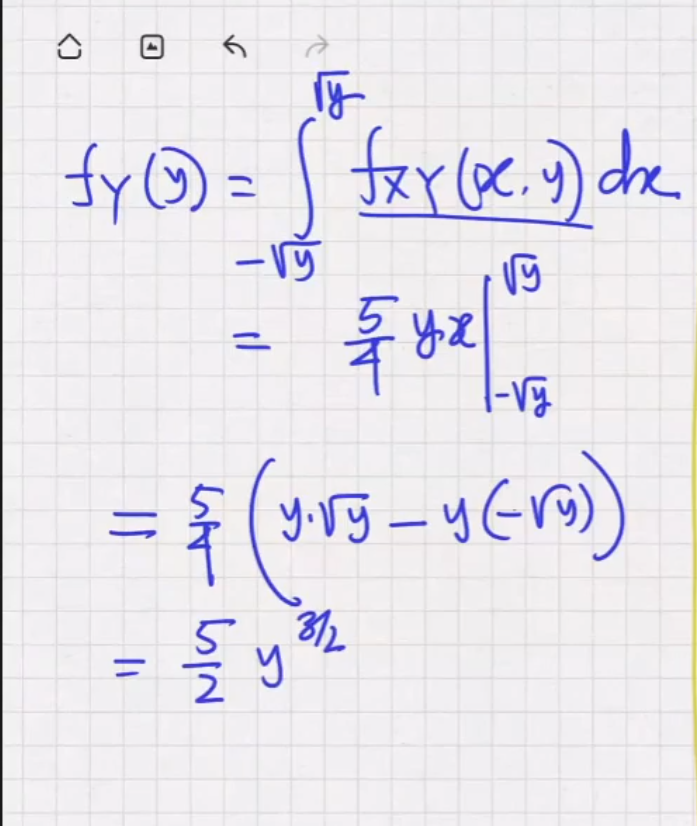 f_Y(y) = ∫_{-√y}^{√y} f_{XY}(x, y) dx
= 5/4 yx |_{-√y}^{√y}
= 5/4 (y·√y − y(−√y))
= 5/2 y^{3/2}